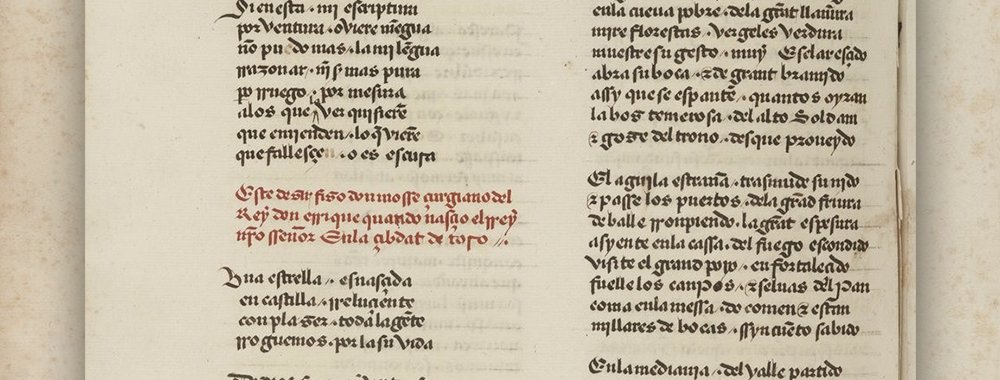 Si en esta . mi escriptura
por ventura . oviere mẽgua
nõ puedo mas . la mi lẽgua
rrazonar . nj̃ s mas pura
po rruego . por mesura
a los que ver quisierẽ
que emienden . lo q̃ vierẽ
que fallesçe . o es escura
Este desir fiso don mosse çurgiano del
Rey don enrrique quando nasçio el rrey
nr̃o señor En la çibdat de toro
Una estrella . es nasçida
en castilla . rreluçiente
con plaser . toda la gẽte
rroguemos . por la su vida
en la cueva pobre . de la grãt llanura
mire florestas . vergeles verdura
muestre su gesto . muy Esclaresçido
abra su boca . & de grant bramido
assy que se espantẽ . quantos oyran
la bos temerosa . del alto Soldam
& gose del trono . desque proueydo
El aguila estraña . trasmude su nido
& passe los puertos . de la grãd friura
de balle rronpiendo . la grãt espesura
asyente en la cassa . del fuego escondido
visite el grand pojo . enfortalecido
fuelle los canpos . & seluas del pan
coma en la messa . do comen & estan
millares de bocas . ssyn cuẽto sabido
En la mediania . del valle partido